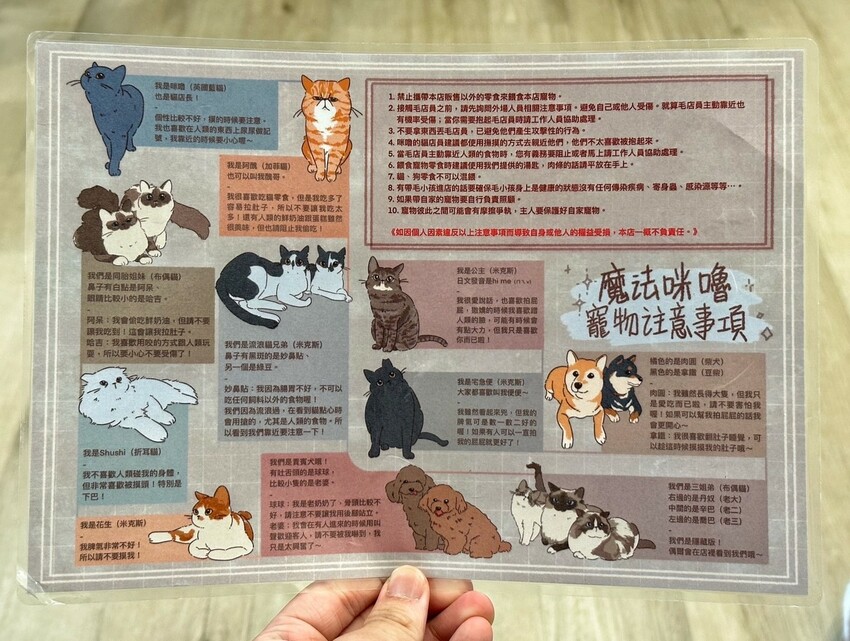 我是咪嚕（英國藍貓）
也是貓店長！
-
個性比較不好，摸的時候要注意。
我也喜歡在人類的東西上尿尿做記
號，我靠近的時候要小心喔～
我是阿醜（加菲貓）
也可以叫我醜哥。
-
我很喜歡吃貓零食，但是我吃多了
容易拉肚子，所以不要讓我吃太
多！還有人類的鮮奶油跟蛋糕雖然
很美味，但也請阻止我偷吃！
1. 禁止攜帶本店販售以外的零食來餵食本店寵物。
2. 接觸毛店員之前，請先詢問外場人員相關注意事項。避免自己或他人受傷。就算毛店員主動靠近也
有機率受傷；當你需要抱起毛店員時請工作人員協助處理。
3. 不要拿東西丟毛店員，已避免他們產生攻擊性的行為。
4. 咪嚕的貓店員建議都使用撫摸的方式去親近他們，他們不太喜歡被抱起來。
5. 當毛店員主動靠近人類的食物時，您有義務要阻止或者馬上請工作人員協助處理。
6. 餵食寵物零食時建議使用我們提供的湯匙，肉條的話請平放在手上。
7. 貓、狗零食不可以混餵。
8. 有帶毛小孩進店的話要確保毛小孩身上是健康的狀態沒有任何傳染疾病、寄身蟲、感染源等等…。
9. 如果帶自家的寵物要自行負責照顧。
10. 寵物彼此之間可能會有摩擦爭執，主人要保護好自家寵物。
《如因個人因素違反以上注意事項而導致自身或他人的權益受損，本店一概不負責任。》
魔法咪嚕
寵物注意事項
我們是同胎姐妹（布偶貓）
鼻子有白點是阿呆、
眼睛比較小的是哈吉。
-
阿呆：我會偷吃鮮奶油，但請不要
讓我吃到！這會讓我拉肚子。
哈吉：我喜歡用咬的方式跟人類玩
耍，所以要小心不要受傷了！
我們是流浪貓兄弟（米克斯）
鼻子有黑斑的是妙鼻貼、
另一個是綠豆。
-
妙鼻貼：我因為腸胃不好，不可以
吃任何飼料以外的食物喔！
我們因為流浪過，在看到貓點心時
會用搶的，尤其是人類的食物。所
以看到我們靠近要注意一下！
我是公主（米克斯）
日文發音是hi me
-
我很愛說話，也喜歡拍屁
屁，撒嬌的時候我喜歡蹭
人類的臉，可能有時候會
有點大力，但我只是喜歡
你而已啦！
我是宅急便（米克斯）
大家都喜歡叫我便便～
-
我雖然看起來兇，但我的
脾氣可是數一數二好的
喔！如果有人可以一直拍
我的屁屁就更好了！
橘色的是肉圓（柴犬）
黑色的是拿鐵（豆柴）
-
肉圓：我雖然長得大隻，但我只
是愛吃而已啦，請不要害怕我
喔！如果可以幫我拍屁屁的話我
會更開心～
拿鐵：我很喜歡翻肚子睡覺，可
以趁這時候摸摸我的肚子哦～
我是Shushi（折耳貓）
-
我不喜歡人類碰我的身體，
但非常喜歡被摸頭！特別是
下巴！
我是花生（米克斯）
-
我脾氣非常不好！
所以請不要摸我！
我們是貴賓犬哦！
有吐舌頭的是球球，
比較小隻的是老婆。
-
球球：我是老奶奶了，骨頭比較不
好，請注意不要讓我用後腳站立。
老婆：我會在有人進來的時候用叫
聲歡迎客人，請不要被我嚇到，我
只是太興奮了～
我們是三姐弟（布偶貓）
右邊的是丹奴（老大）
中間的是辛巴（老二）
左邊的是喬巴（老三）
-
我們是隱藏版！
偶爾會在店裡看到我們哦～